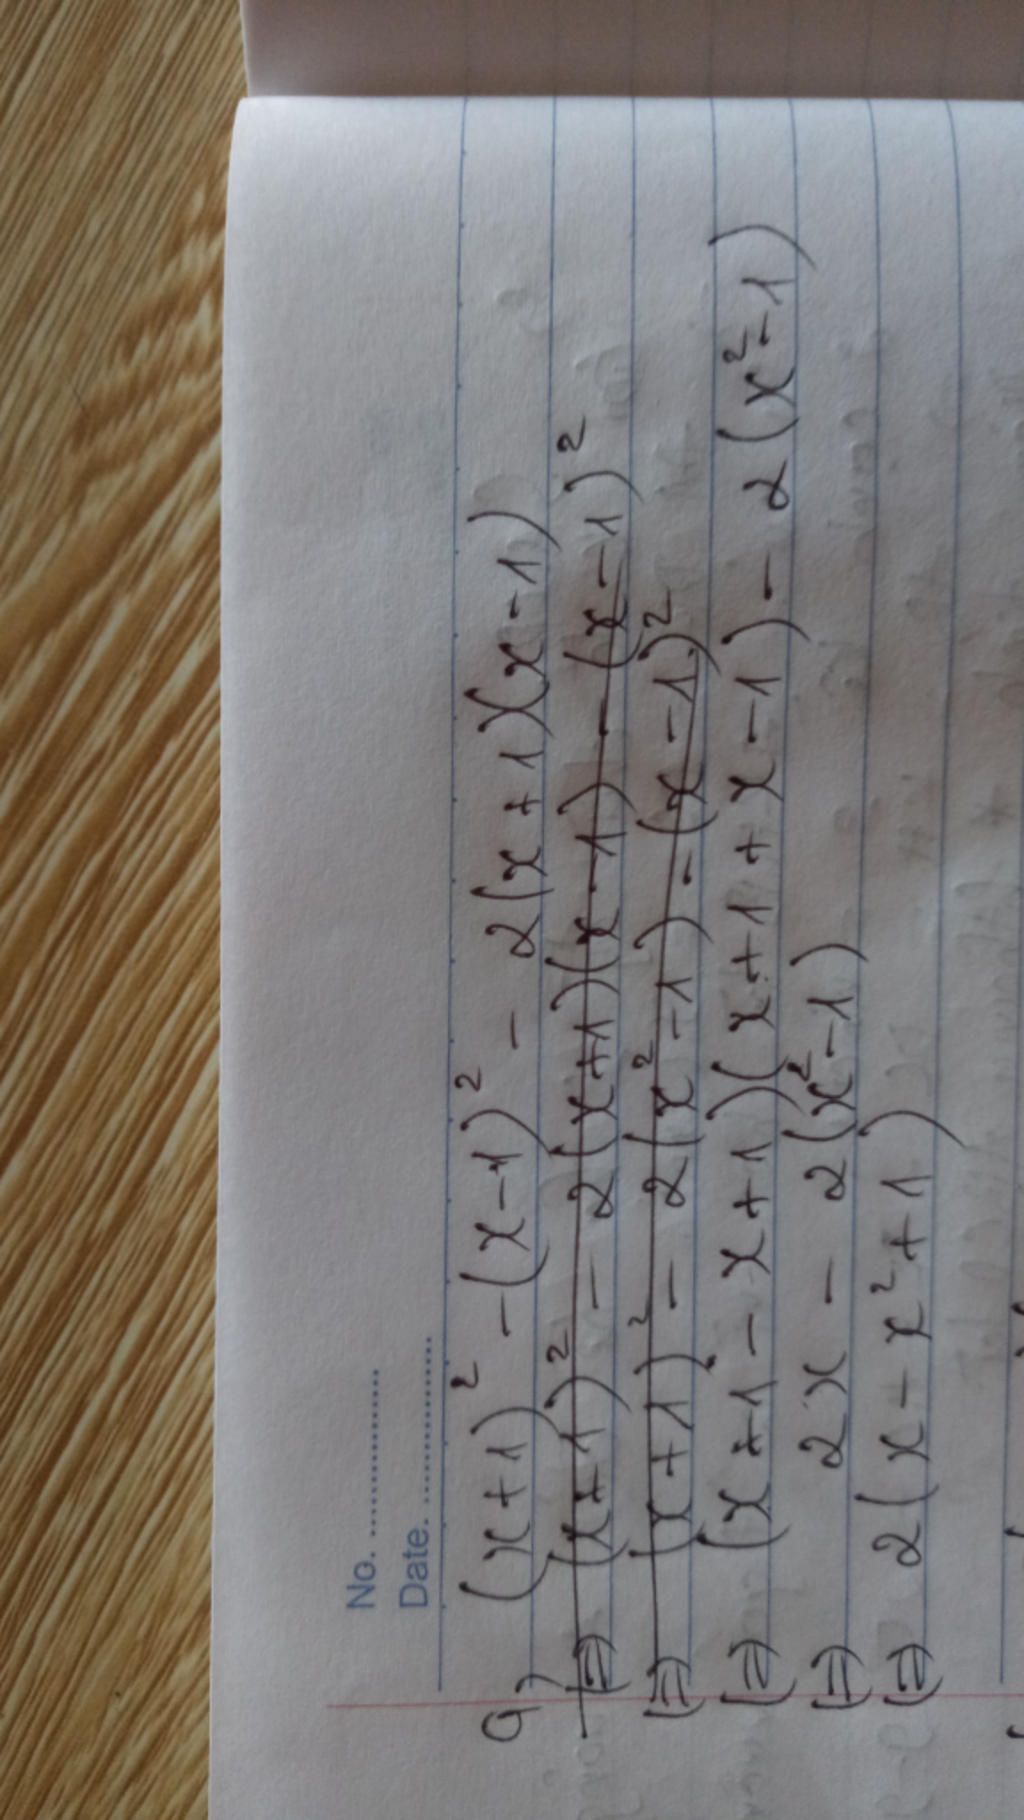 No. ....................
Date. ....................
a) (x+1)² - (x-1)² - 2(x+1)(x-1)
(=) (x+1)² - 2(x+1)(x-1) - (x-1)²
(=) (x+1)² - 2(x²-1) - (x-1)²
(=) (x+1-x+1)(x+1+x-1) - 2(x²-1)
(=) 2x - 2(x²-1)
(=) 2(x-x²+1)